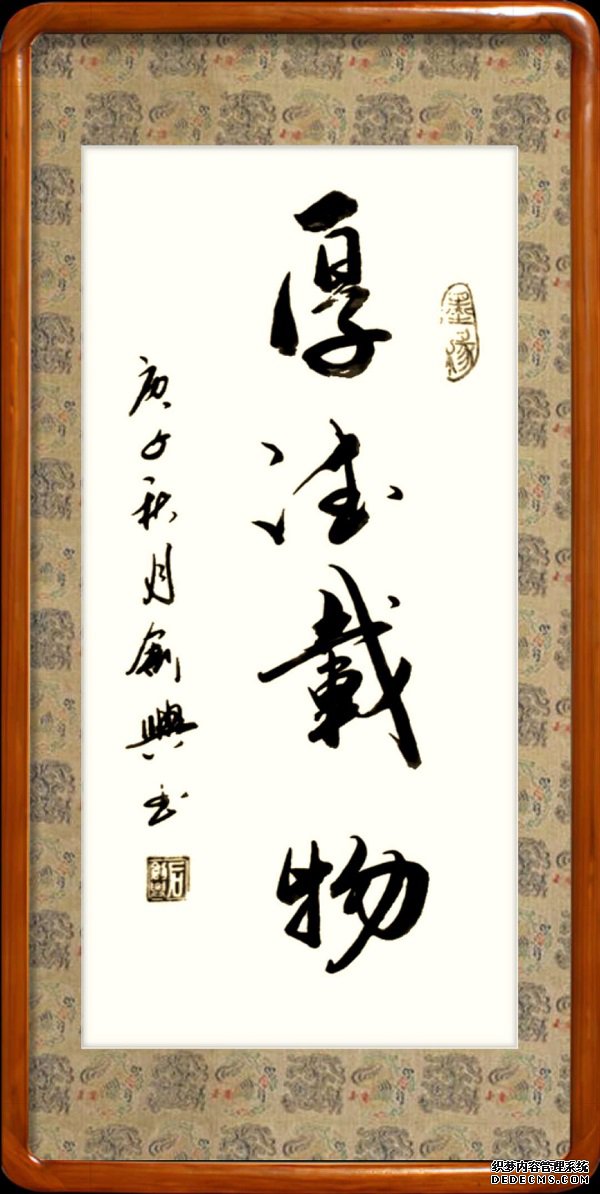 墨缘
厚德載物
庚子秋月創興书
织梦内容管理系统
DEDECMS.COM